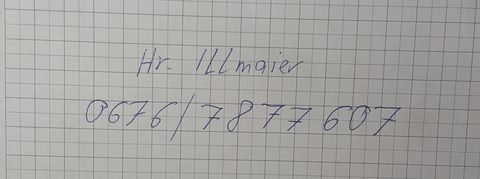 Hr. Illmaier
0676/7877607